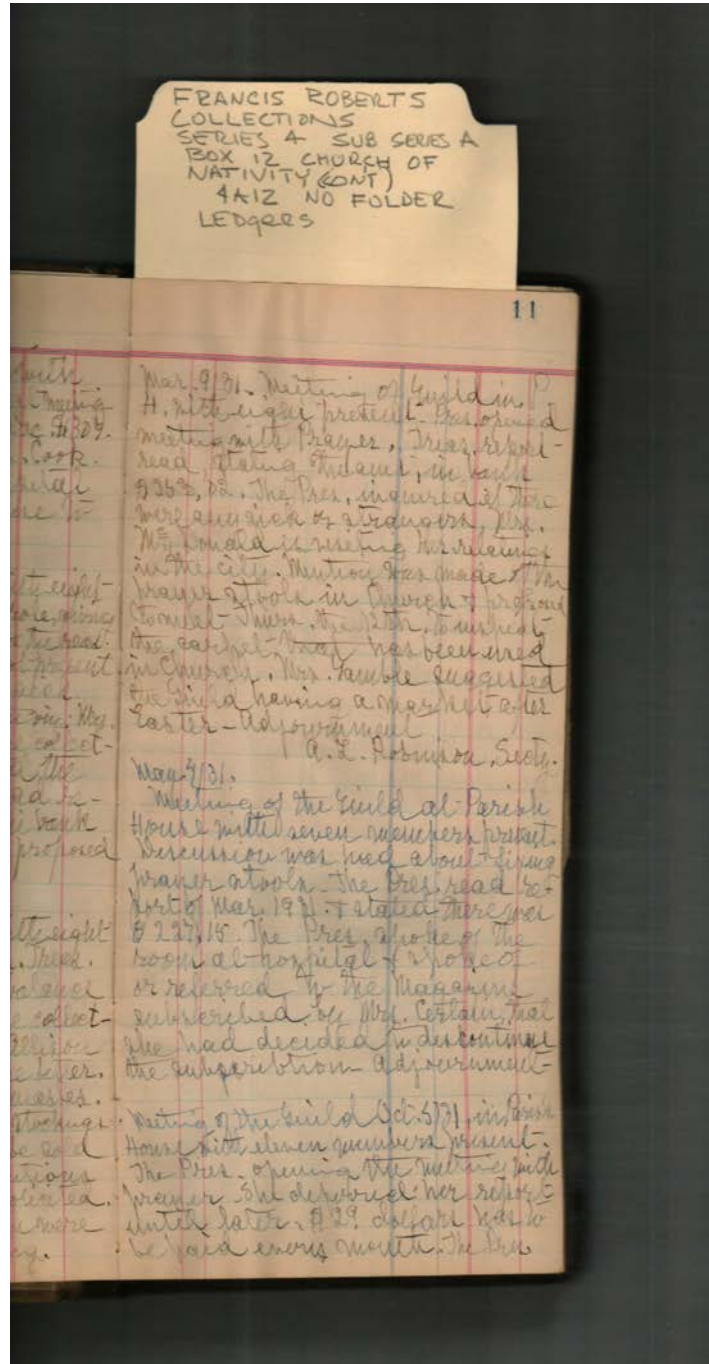 FRANCIS ROBERTS
COLLECTIONS
SERIES 4 SUB SERIES A
BOX 12 CHURCH OF
NATIVITY (CONT)
4A12 NO FOLDER
LEDGERS
11
Mar. 9/31. Meeting of Guild in P
H. with eight present. Pres. opened
meeting with Prayer. Treas. report
read, stating the amt, in bank
The Pres, inquired if there
were any sick or strangers, Mrs.
McDonald is visiting her relatives
in the city. Mention was made of the
prayer stools in Church &
to meet Thurs. the 12th, to
the carpet that has been used
in Church. Mrs. Gamble suggested
the Guild having a market after
Easter - Adjournment
A. L. Robinson, Secty.
May 4/31.
Meeting of the Guild at Parish
House with seven members present.
Discussion was had about fixing
prayer stools. The Pres. read re-
port of Mar. 1931. & stated there was
$227.15. The Pres. spoke of the
room at hospital & spoke of
or referred to the Magazine
subscribed by Mrs. Certain, that
she had decided to discontinue
the subscribtion - Adjournment -
Meeting of the Guild Oct. 5/31, in Parish
House with eleven members present.
The Pres. opening the meeting with
prayer. She deferred her report
until later. $29 dollars has to
be paid every month. The Pres.
with
Meeting
$309.
Cook.
eight
present
Mrs.
the
bank
proposed
eight
Treas.
balance
collect-
Stockings
be sold
were